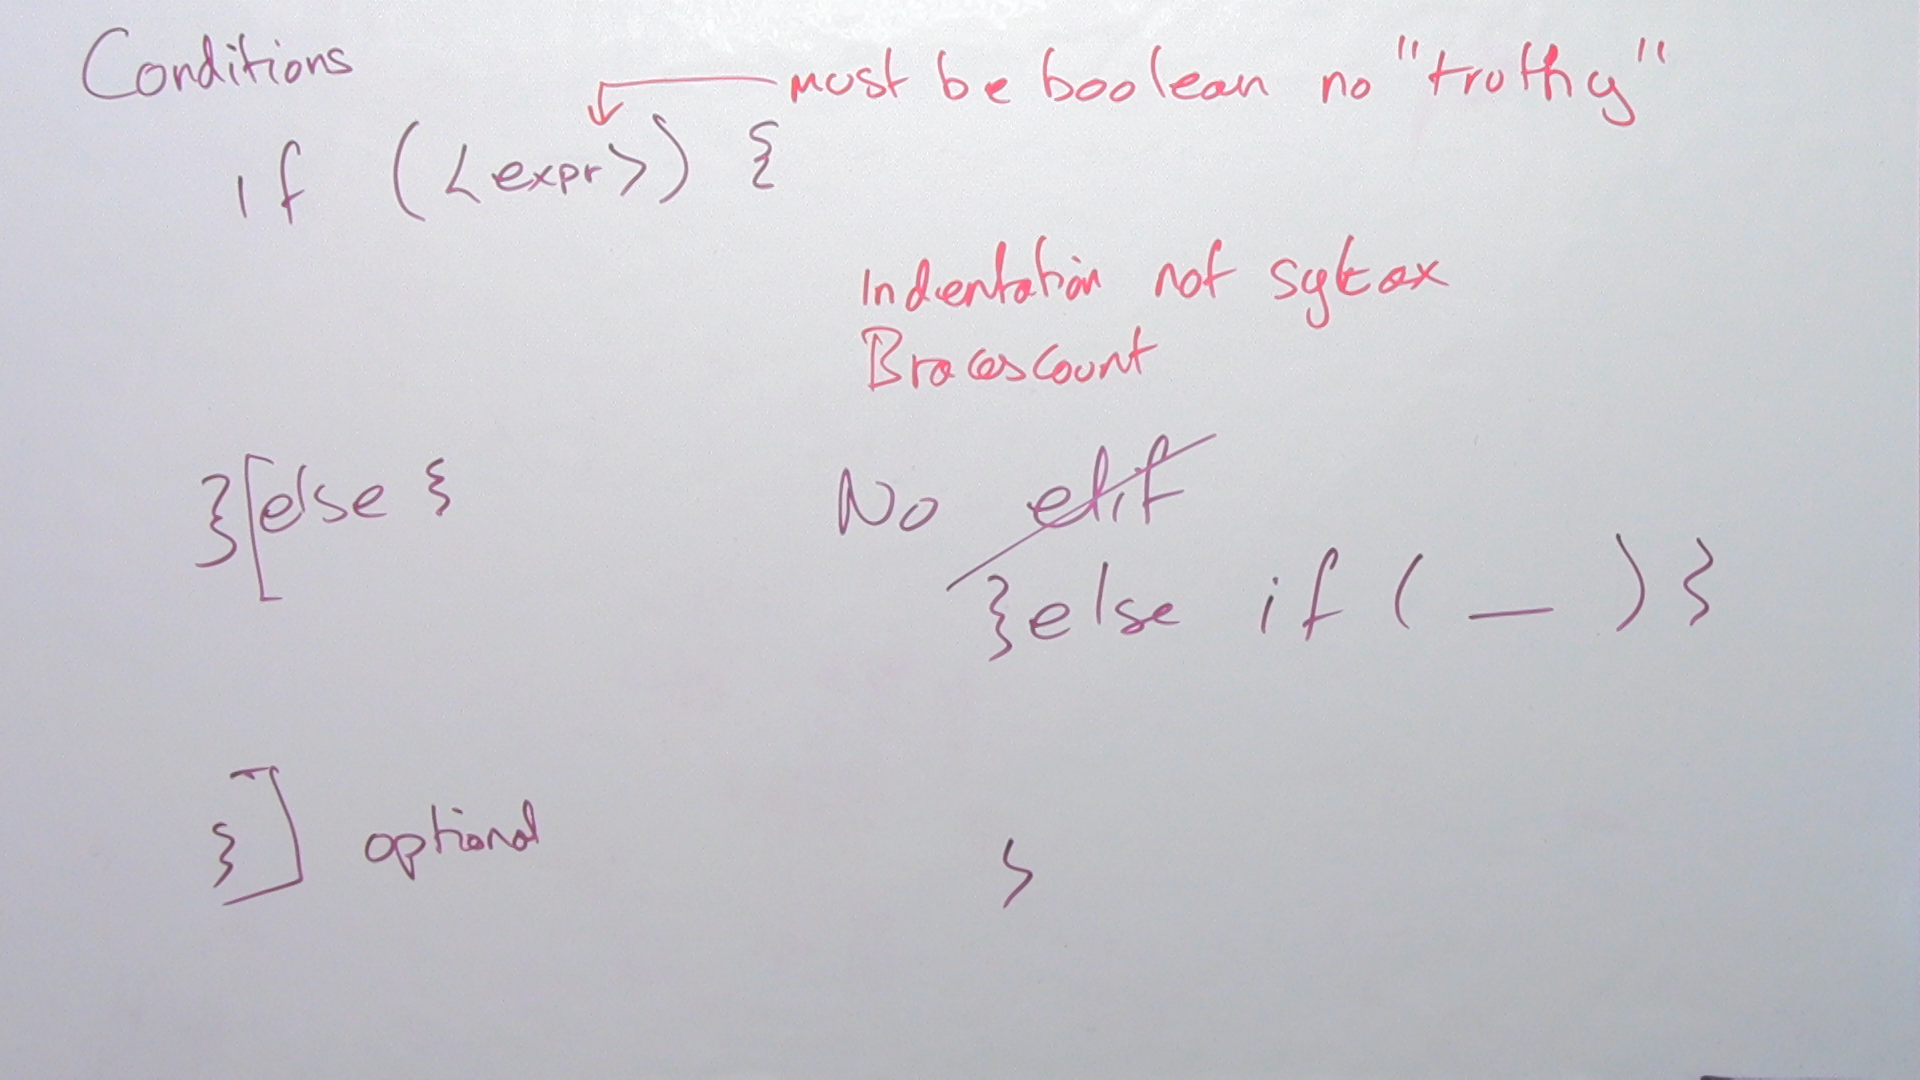 Conditions
must be boolean no "truthy"
if (<expr>) {
Indentation not sytax
Braces count
}[else {
No elif
}else if ( _ ) }
}] optional
}